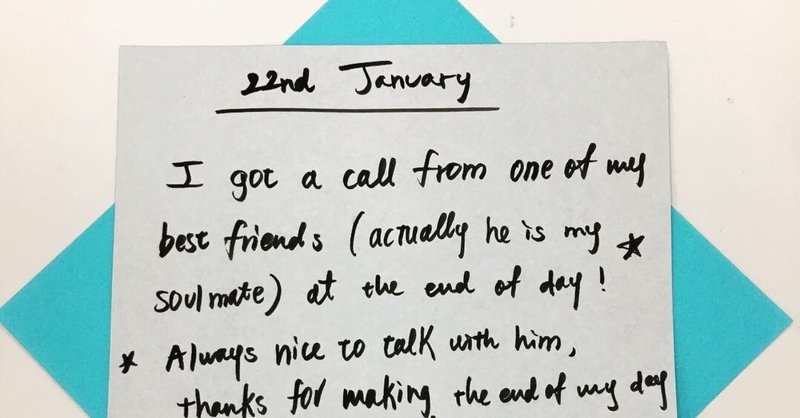 22nd January
I got a call from one of my
best friends (actually he is my ★
soulmate) at the end of day!
★ Always nice to talk with him,
thanks for making the end of my day